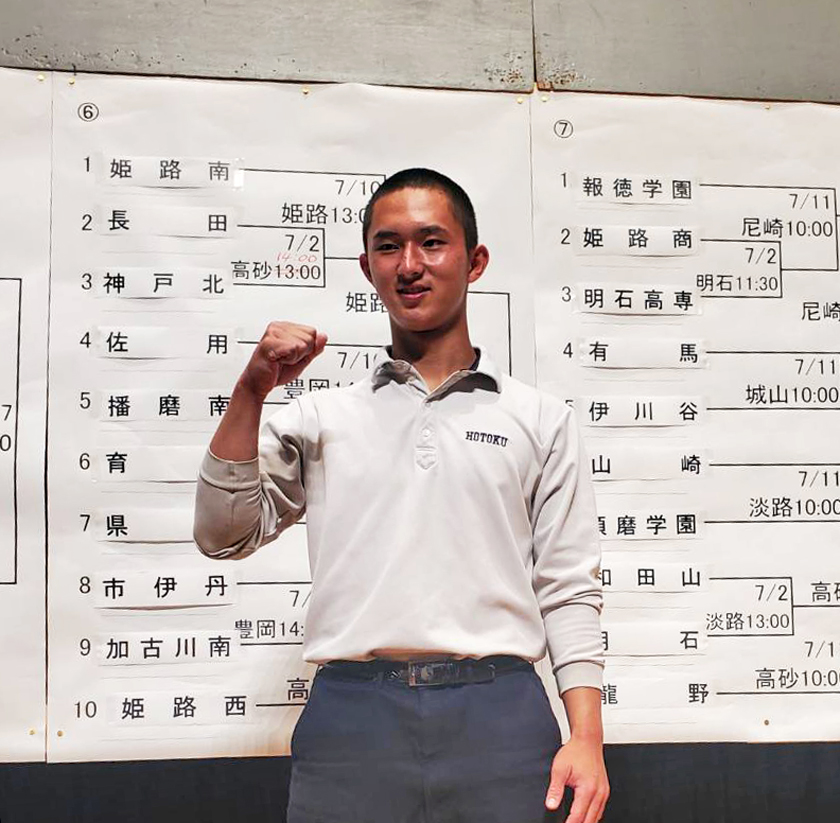 ⑥
1 姫路南
7/10
姫路13:0
2 長田
7/2
14:00
高砂13:00
3 神戸北
姫路
4 佐用
7/1
豊岡14
5 播磨南
6 育
7 県
8 市伊丹
7/
豊岡14:
9 加古川南
高
10 姫路西
7
0
HOTOKU
⑦
1 報徳学園
7/11
尼崎10:00
2 姫路商
7/2
明石11:30
3 明石高専
尼崎
4 有馬
7/11
城山10:00
5 伊川谷
山崎
7/11
淡路10:00
須磨学園
和田山
7/2
高砂
淡路13:00
明石
7/1
高砂10:0
龍野